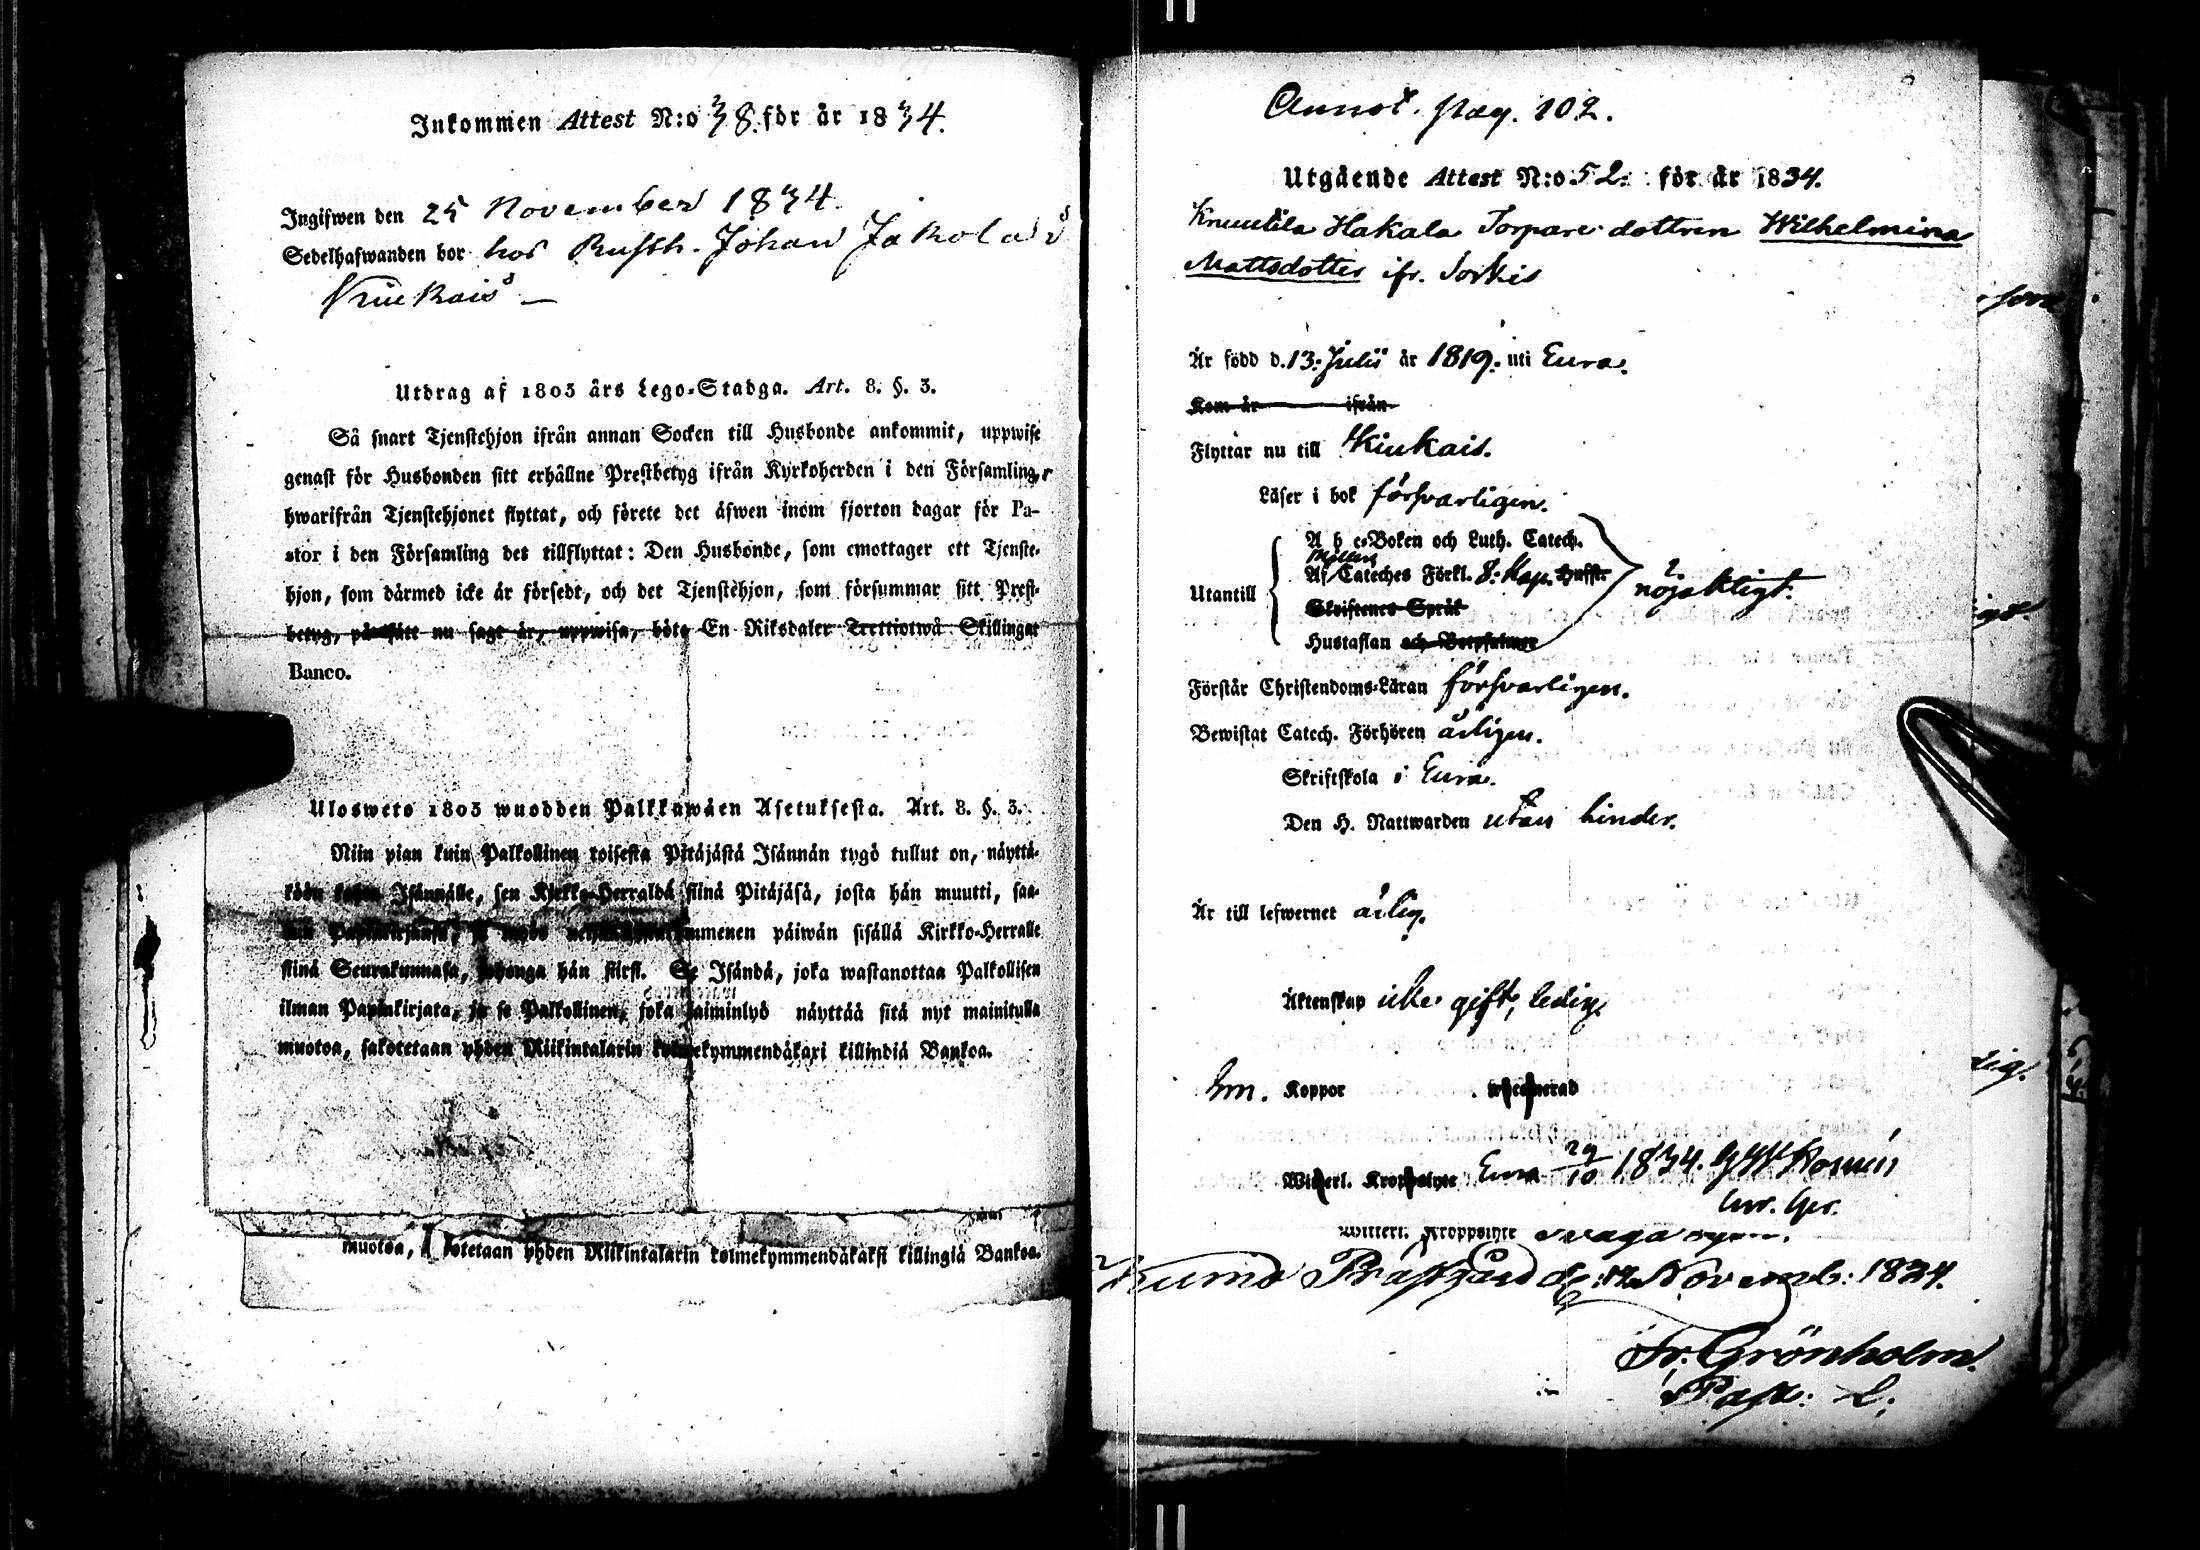 Inkommen Attest N:o 38. för år 1834.
Ingifwen den 25 November 1834.
Sedelhafwanden bor hos Rusth. Johan Jakola i
Kiukais —
Utdrag af 1805 års Lego-Stadga. Art. 8. §. 3.
Så snart Tjenstehjon ifrån annan Socken till Husbonde ankommit, uppwise
genast för Husbonden sitt erhållne Prestbetyg ifrån Kyrkoherden i den Församling,
hwarifrån Tjenstehjonet flyttat, och förete det äfwen inom fjorton dagar för Pa-
stor i den Församling det tillflyttat: Den Husbonde, som emottager ett Tjenste-
hjon, som därmed icke är försedt, och det Tjenstehjon, som försummar sitt Prest-
betyg, på sätt nu sagt är, uppwisa, böte En Riksdaler Trettiotwå Skillingar
Banco.
Ulosweto 1805 wuodden Palkkawäen Asetuksesta. Art. 8. §. 3.
Niin pian kuin Palkollinen toisesta Pitäjästä Isännän tygö tullut on, näyttä-
köön Isännälle, sen Kirkko-Herralda siinä Pitäjäsä, josta hän muutti, saa-
päiwän sisällä Kirkko-Herralle
siinä Seurakunnasa, johonga hän siirsi. Se Isändä, joka wastanottaa Palkollisen
ilman Papinkirjata, ja se Palkollinen, joka laiminlyö näyttää sitä nyt mainitulla
muotoa, sakotetaan yhden Riikintalarin kolmekymmendäkaxi killindiä Bankoa.
muotoa, sotetaan yhden Riikintalarin kolmekymmendäkaksi killingiä Bankoa.
Annot. pag. 102.
Utgående Attest N:o 52. för år 1834.
Knuutila Hakala Torpare dottren Wilhelmina
Mattsdotter ifr. Sorkis
Är född d. 13. Julii år 1819. uti Eura.
Kom år ifrån
Flyttar nu till Kiukais.
Läser i bok försvarligen.
A b c-Boken och Luth. Catech.
Af Cateches Förkl. 8. Kap.
Utantill nöjaktigt.
Skriftenes Språk
Hustaflan och Botpsalmer
Förstår Christendoms-Läran försvarligen.
Bewistat Catech. Förhören årligen.
Skriftskola i Eura.
Den H. Nattwarden utan hinder.
Är till lefwernet ärlig.
Äktenskap icke gift, ledig.
Koppor
Witterl. Kroppslyte Eura 29/10 1834.
Witterl. Kroppslyte svaga
Kumo Prästgård d. 12 Novemb: 1834.
Fr. Grönholm.
Past: L: